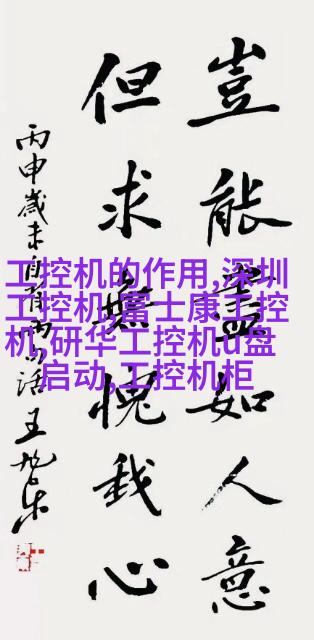 豈能盡如人意
但求無愧我心
丙申歲末自
话 王
工控机的作用,深圳
工控机,富士康工控
机,研华工控机u盘
启动,工控机柜